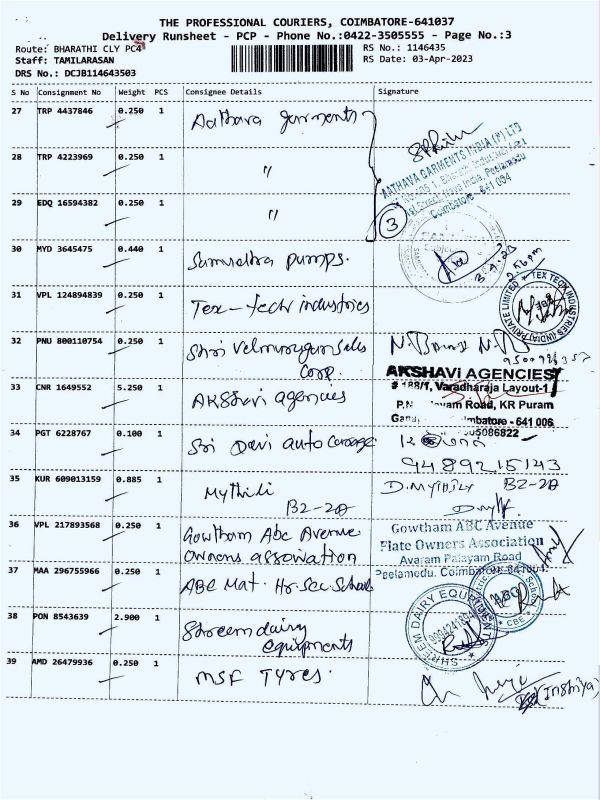 THE PROFESSIONAL COURIERS, COIMBATORE-641037
Delivery Runsheet - PCP - Phone No.:0422-3505555 - Page No.:3
Route: BHARATHI CLY PC4
RS No.: 1146435
Staff: TAMILARASAN
RS Date: 03-Apr-2023
DRS No.: DCJB114643503
S No Consignment No Weight PCS Consignee Details Signature
27 TRP 4437846 0.250 1 Aathava garments
28 TRP 4223969 0.250 1 "
AATHAVA GARMENTS INDIA (P) LTD
Peelamedu
Coimbatore - 641 004
29 EDQ 16594382 0.250 1 "
3
30 MYD 3645475 0.440 1 Samudhra pumps.
3-4-23
2.56pm
31 VPL 124894839 0.250 1 Tex-tech industries
TEX TECH INDUSTRIES (INDIA) PRIVATE LIMITED
32 PNU 800110754 0.250 1 Shri Velmurugan Sales
Corp.
AKSHAVI AGENCIES
# 188/1, Varadharaja Layout-1
33 CNR 1649552 5.250 1 AKshavi agencies
P.N. Road, KR Puram
- 641 006
34 PGT 6228767 0.100 1 Sri Devi auto Garage
9489215143
35 KUR 609013159 0.885 1 Mythili
B2-2A
D.Mythily B2-2A
36 VPL 217893568 0.250 1 Gowtham Abc Avenue
owners association
Gowtham ABC Avenue
Flate Owners Association
Avaram Palayam Road
Peelamedu, Coimbatore-641004.
37 MAA 296755966 0.250 1 ABC Mat. Hr Sec School
ABC
CBE
38 PON 8543639 2.900 1 Shreem dairy
equipments
SHREEM DAIRY EQUIPMENTS
39 AMD 26479936 0.250 1 MSF Tyres.